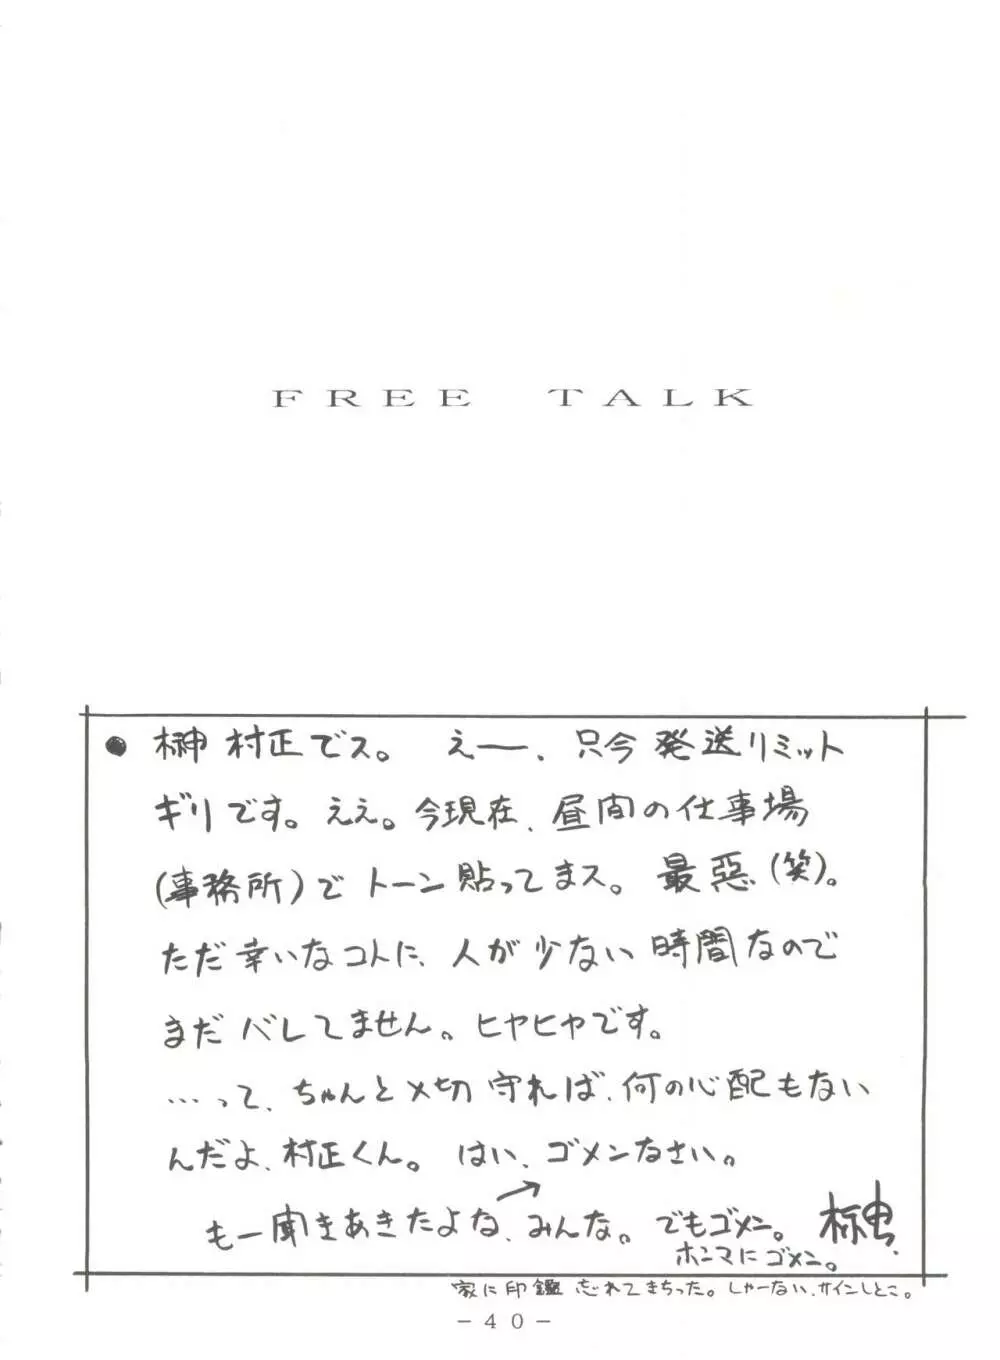 FREE TALK
● 榊 村正でス。 えー、只今 発送リミット
ギリです。ええ。今現在、昼間の仕事場
(事務所)で トーン貼ってまス。 最悪(笑)。
ただ幸いなコトに、人が少ない時間なので
まだバレてません。ヒヤヒヤです。
…って、ちゃんと〆切守れば、何の心配もない
んだよ、村正くん。 はい、ゴメンなさい。
もー聞きあきたよな、みんな。でもゴメン。 榊
ホンマにゴメン。
家に印鑑 忘れてきちった。しゃーない、サインしとこ。
－40－